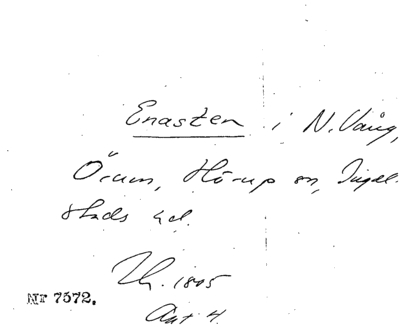 Enasten i N. Vång,
Örum, Hörup sn, Ingel-
stads hd.
1805
Akt 4.
Nr 7572.